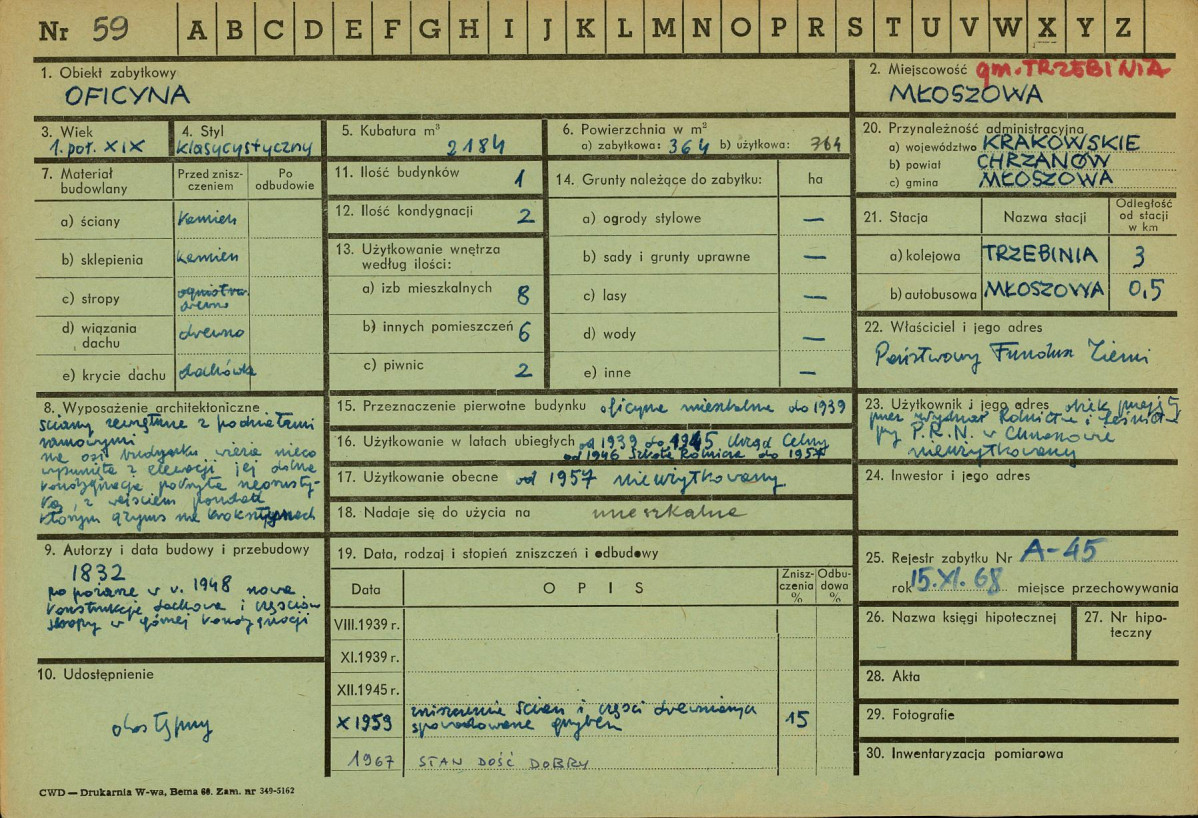 Nr 59 A B C D E F G H I J K L M N O P R S T U V W X Y Z
1. Obiekt zabytkowy
OFICYNA
2. Miejscowość gm. TRZEBINIA
MŁOSZOWA
3. Wiek
1. poł. XIX
4. Styl
klasycystyczny
5. Kubatura m³
2184
6. Powierzchnia w m²
a) zabytkowa: 364 b) użytkowa: 364
20. Przynależność administracyjna
a) województwo KRAKOWSKIE
b) powiat CHRZANÓW
c) gmina MŁOSZOWA
7. Materiał budowlany
Przed zniszczeniem
Po odbudowie
a) ściany kamień
b) sklepienia kamień
c) stropy ogniotrw. drewno
d) wiązania dachu drewno
e) krycie dachu dachówka
11. Ilość budynków 1
12. Ilość kondygnacji 2
13. Użytkowanie wnętrza
według ilości:
a) izb mieszkalnych 8
b) innych pomieszczeń 6
c) piwnic 2
14. Grunty należące do zabytku: ha
a) ogrody stylowe —
b) sady i grunty uprawne —
c) lasy —
d) wody —
e) inne —
21. Stacja Nazwa stacji Odległość od stacji w km
a) kolejowa TRZEBINIA 3
b) autobusowa MŁOSZOWA 0,5
22. Właściciel i jego adres
Państwowy Fundusz Ziemi
8. Wyposażenie architektoniczne
ściany zewnętrzne z podziałami
ramowymi
na osi budynku wieża nieco
wysunięta z elewacji jej dolna
kondygnacja pokryta
z wejściem ponad
którym gzyms na kroksztynach
15. Przeznaczenie pierwotne budynku oficyna mieszkalna do 1939
16. Użytkowanie w latach ubiegłych od 1939 do 1945 Urząd Celny
od 1946 Szkoła Rolnicza do 1957
17. Użytkowanie obecne od 1957 nieużytkowany
18. Nadaje się do użycia na mieszkalne
23. Użytkownik i jego adres obiek przejęty
przez wydział Rolnictwa i Leśnictwa
przy P.R.N. w Chrzanowie
nieużytkowany
24. Inwestor i jego adres
9. Autorzy i data budowy i przebudowy
1832
po pożarze w r. 1948 nowa
konstrukcja dachowa i częściowo
stropy w górnej kondygnacji
19. Data, rodzaj i stopień zniszczeń i odbudowy
Data OPIS Zniszczenia % Odbudowa %
VIII.1939 r.
XI.1939 r.
XII.1945 r.
X 1959 zniszczenie ścian i części drewnianych
spowodowane grzybem 15
1967 STAN DOŚĆ DOBRY
25. Rejestr zabytku Nr A-45
rok 15.XI.68 miejsce przechowywania
26. Nazwa księgi hipotecznej
27. Nr hipoteczny
10. Udostępnienie
dostępny
28. Akta
29. Fotografie
30. Inwentaryzacja pomiarowa
CWD — Drukarnia W-wa, Bema 60. Zam. nr 349-5162